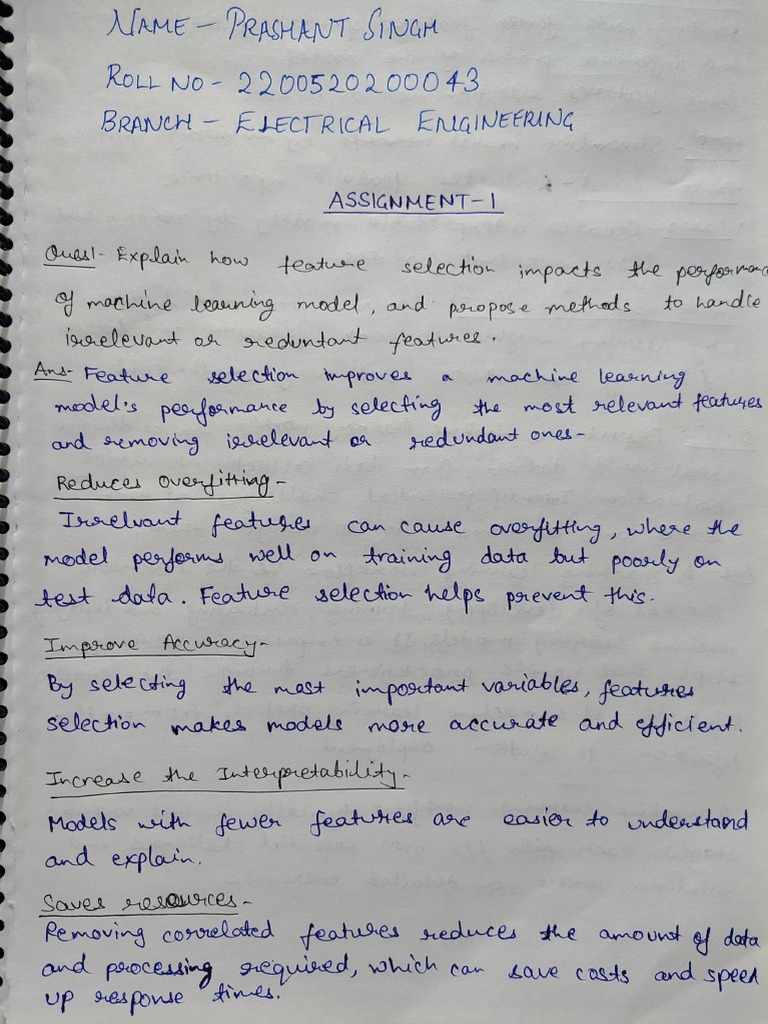 NAME - PRASHANT SINGH
ROLL NO - 2200520200043
BRANCH - ELECTRICAL ENGINEERING
ASSIGNMENT-1
Ques1- Explain how feature selection impacts the performance
of machine learning model, and propose methods to handle
irrelevant or reduntant features.
Ans- Feature selection improves a machine learning
model's performance by selecting the most relevant features
and removing irrelevant or redundant ones-
Reduces Overfitting-
Irrelvant features can cause overfitting, where the
model performs well on training data but poorly on
test data. Feature selection helps prevent this.
Improve Accuracy-
By selecting the most important variables, features
selection makes models more accurate and efficient.
Increase the Interpretability-
Models with fewer features are easier to understand
and explain.
Saves resources-
Removing correlated features reduces the amount of data
and processing required, which can save costs and speed
up response times.